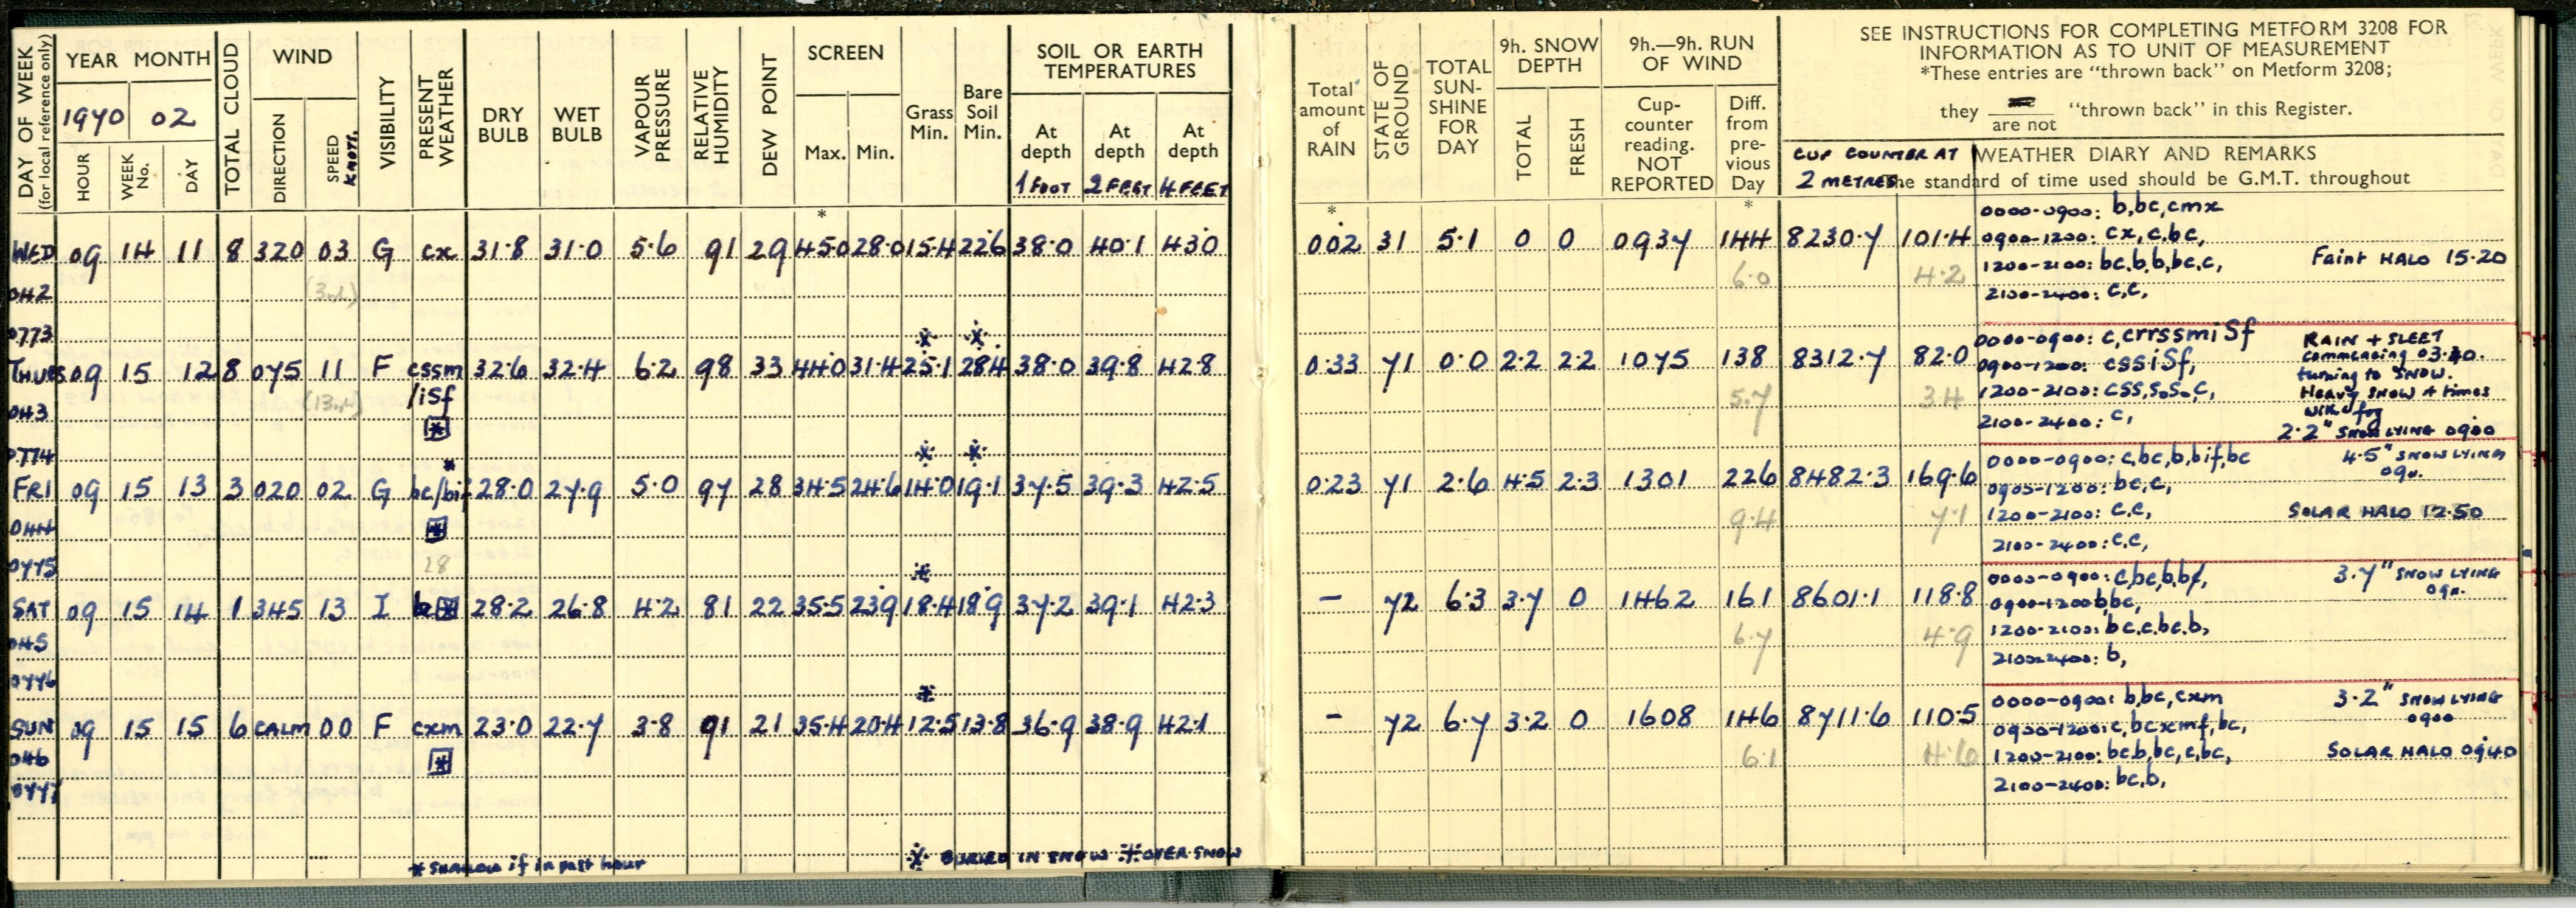 DAY OF WEEK
(for local reference only)
YEAR MONTH
1970 02
HOUR
WEEK No.
DAY
TOTAL CLOUD
WIND
DIRECTION
SPEED
KNOTS.
VISIBILITY
PRESENT WEATHER
DRY BULB
WET BULB
VAPOUR PRESSURE
RELATIVE HUMIDITY
DEW POINT
SCREEN
Max. Min.
Grass Min.
Bare Soil Min.
SOIL OR EARTH TEMPERATURES
At depth 1 FOOT
At depth 2 FEET
At depth 4 FEET
Total amount of RAIN
STATE OF GROUND
TOTAL SUN-SHINE FOR DAY
9h. SNOW DEPTH
TOTAL
FRESH
9h.—9h. RUN OF WIND
Cup-counter reading. NOT REPORTED
Diff. from pre-vious Day
SEE INSTRUCTIONS FOR COMPLETING METFORM 3208 FOR
INFORMATION AS TO UNIT OF MEASUREMENT
*These entries are "thrown back" on Metform 3208;
they are not "thrown back" in this Register.
CUP COUNTER AT 2 METRES
WEATHER DIARY AND REMARKS
The standard of time used should be G.M.T. throughout
* * *
WED 09 14 11 8 320 03 G cx 31·8 31·0 5·6 91 29 45·0 28·0 15·4 22·6 38·0 40·1 43·0 0·02 31 5·1 0 0 0937 144 8230·7 101·4
042 6·0 4·2
0000-0900: b,bc,cmx
0900-1200: cx,c.bc,
1200-2100: bc.b,b,bc,c,
2100-2400: c,c,
Faint HALO 15·20
0773
THURS 09 15 12 8 075 11 F cssm/iSf 32·6 32·4 6·2 98 33 44·0 31·4 25·1 28·4 38·0 39·8 42·8 0·33 71 0·0 2·2 2·2 1075 138 8312·7 82·0
043 5·7 3·4
0000-0900: c,crrssmiSf
0900-1200: cssiSf,
1200-2100: css,s₀s₀,c,
2100-2400: c,
RAIN + SLEET
commencing 03·30.
turning to SNOW.
Heavy SNOW at times
with fog
2·2" SNOW LYING 0900
0774
FRI 09 15 13 3 020 02 G bc/bif 28·0 27·9 5·0 97 28 34·5 24·6 14·0 19·1 37·5 39·3 42·5 0·23 71 2·6 4·5 2·3 1301 226 8482·3 169·6
044 9·4 7·1
0000-0900: c,bc,b,bif,bc
0900-1200: bc,c,
1200-2100: c,c,
2100-2400: c,c,
4·5" SNOW LYING
SOLAR HALO 12·50
0775 28
SAT 09 15 14 1 345 13 I b 28·2 26·8 4·2 81 22 35·5 23·9 18·4 18·9 37·2 39·1 42·3 – 72 6·3 3·7 0 1462 161 8601·1 118·8
045 6·7 4·9
0000-0900: c,bc,b,bf,
0900-1200 b,bc,
1200-2100: bc,c,bc,b,
2100-2400: b,
3·7" SNOW LYING
0776
SUN 09 15 15 6 CALM 00 F cxm 23·0 22·7 3·8 91 21 35·4 20·4 12·5 13·8 36·9 38·9 42·1 – 72 6·7 3·2 0 1608 146 8711·6 110·5
046 6·1 4·6
0000-0900: b,bc,cxm
0900-1200: c,bcxmf,bc,
1200-2100: bc,b,bc,c,bc,
2100-2400: bc,b,
3·2" SNOW LYING
0900
SOLAR HALO 0940
0777
* SHALLOW if in past hour
※ BURIED IN SNOW ⁜ OVER SNOW